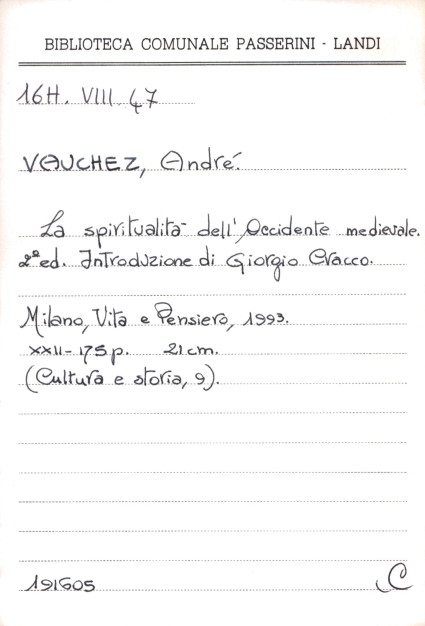 BIBLIOTECA COMUNALE PASSERINI - LANDI
16H. VIII. 47
VAUCHEZ, André.
La spiritualità dell'Occidente medievale.
2ª ed. Introduzione di Giorgio Cracco.
Milano, Vita e Pensiero, 1993.
XXII-175 p. 21 cm.
(Cultura e storia, 9).
191605 C